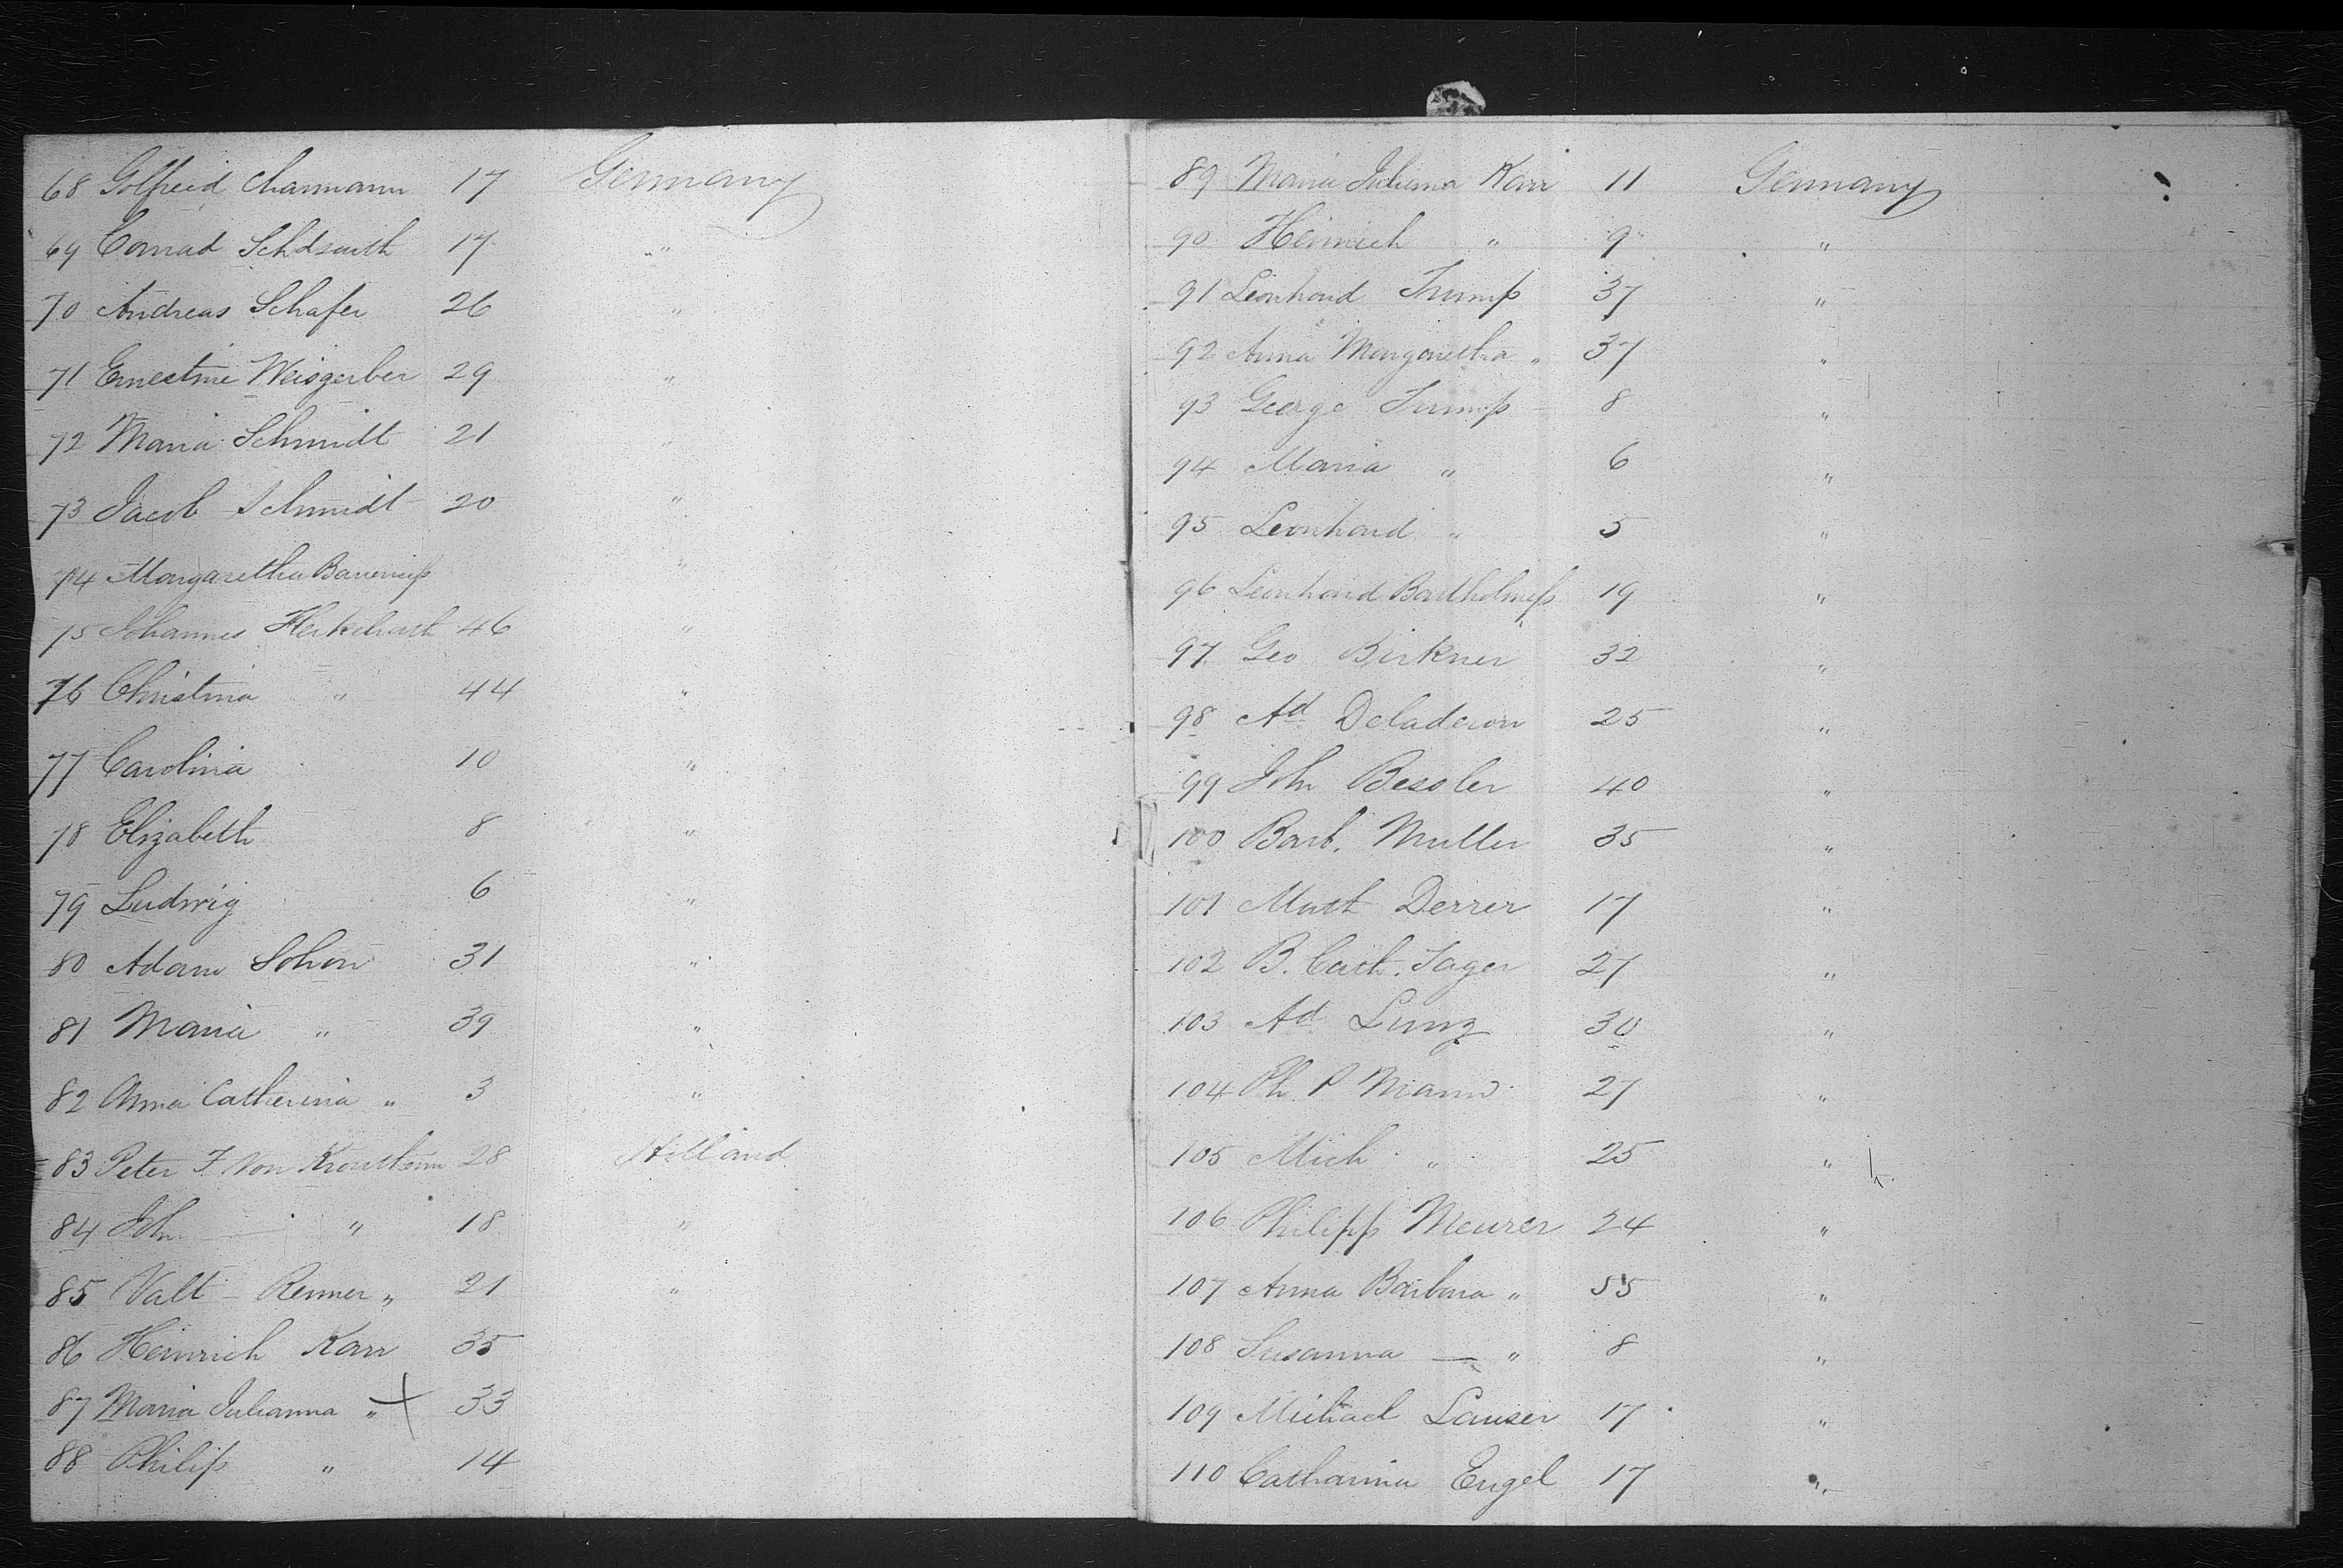 68 Golfried Charmann 17 Germany
69 Conrad 17 "
70 Andreas Schafer 26 "
71 Ernestine Weisgerber 29 "
72 Maria Schmidt 21 "
73 Jacob Schmidt 20 "
74 Margaretha "
75 Johannes 46 "
76 Christina " 44 "
77 Carolina 10 "
78 Elizabeth 8 "
79 Ludwig 6 "
80 Adam Schon 31 "
81 Maria " 39 "
82 Anna Catherina " 3 "
83 Peter F. Von 28 Holland
84 Joh " 18 "
85 Valt - Renner " 21 "
86 Heinrich Karr 35
87 Maria Julianna " 33
88 Philip " 14
89 Maria Julianna Karr 11 Germany
90 Heinrich " 9 "
91 Leonhard Trump 37 "
92 Anna Margaretha " 37 "
93 George Trump 8 "
94 Maria " 6 "
95 Leonhard " 5 "
96 Leonhard Bartholmeß 19 "
97 Geo Birkner 32 "
98 Ad Deladeron 25 "
99 Joh Bessler 40 "
100 Barb. Muller 35 "
101 Matt Derrer 17 "
102 B. Cath. Jager 27 "
103 Ad Lunz 30 "
104 Ph. P Mann 27 "
105 Mich " 25 "
106 Philipp Meurer 24 "
107 Anna Barbara " 55 "
108 Susanna — " 8 "
109 Michael Lauser 17 "
110 Catharina Engel 17 "